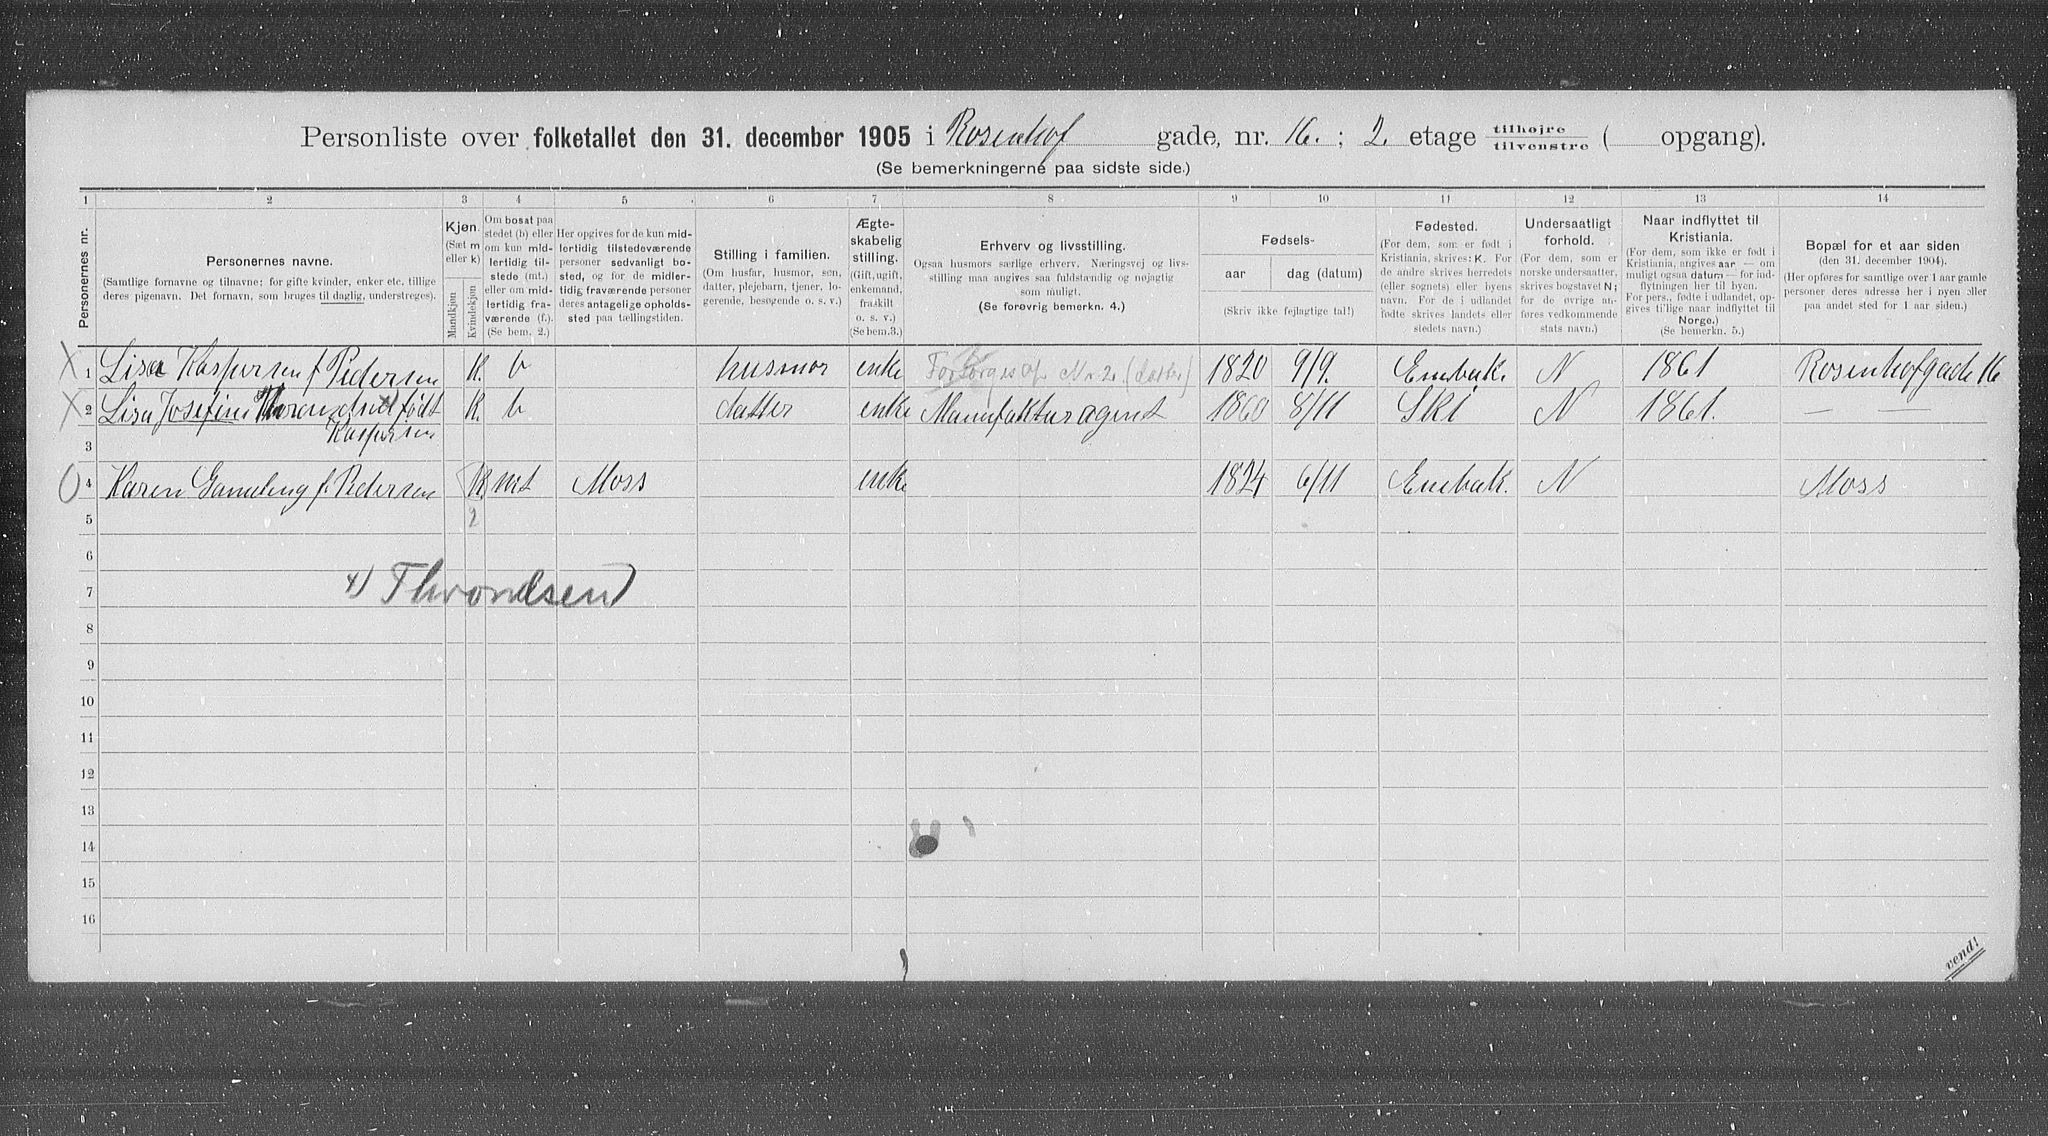 Personliste over folketallet den 31. december 1905 i Rosenhof gade, nr. 16. ; 2. etage tilhøjre tilvenstre ( opgang).
(Se bemerkningerne paa sidste side.)
1 2 3 4 5 6 7 8 9 10 11 12 13 14
Personernes nr.
Personernes navne.
(Samtlige fornavne og tilnavne; for gifte kvinder, enker etc. tillige
deres pigenavn. Det fornavn, som bruges til daglig, understreges).
Kjøn.
(Sæt m
eller k)
Mandkjøn
Kvindekjøn
Om bosat paa
stedet (b) eller
om kun mid-
lertidig til-
stede (mt.)
eller om mid-
lertidig fra-
værende (f.).
(Se bem. 2.)
Her opgives for de kun mid-
lertidig tilstedeværende
personer sedvanligt bo-
sted, og for de midler-
tidig fraværende personer
deres antagelige opholds-
sted paa tællingstiden.
Stilling i familien.
(Om husfar, husmor, søn,
datter, plejebarn, tjener, lo-
gerende, besøgende o. s. v.)
Ægte-
skabelig
stilling.
(Gift, ugift,
enkemand,
fraskilt
o. s. v.)
(Se bem.3.)
Erhverv og livsstilling.
Ogsaa husmors særlige erhverv. Næringsvej og livs-
stilling maa angives saa fuldstændig og nøjagtig
som muligt.
(Se forøvrig bemerkn. 4.)
Fødsels-
aar
dag (datum)
(Skriv ikke fejlagtige tal!)
Fødested.
(For dem, som er født i
Kristiania, skrives: K. For
de andre skrives herredets
(eller sognets) eller byens
navn. For de i udlandet
fødte skrives landets eller
stedets navn.)
Undersaatligt
forhold.
(For dem, som er
norske undersaatter,
skrives bogstavet N;
for de øvrige an-
føres vedkommende
stats navn.)
Naar indflyttet til
Kristiania.
(For dem, som ikke er født i
Kristiania, angives aar — om
muligt ogsaa datum — for ind-
flytningen her til byen.
For pers., fødte i udlandet, op-
gives tillige naar indflyttet til
Norge.)
(Se bemerkn. 5.)
Bopæl for et aar siden
(den 31. december 1904).
(Her opføres for samtlige over 1 aar gamle
personer deres adresse her i byen eller
paa andet sted for 1 aar siden.)
X 1 Lisa Kaspersen f. Pedersen K. b husmor enke Forsørges af Nr 2. (datter) 1820 9/9. Enebak. N 1861 Rosenhofgade 16
X 2 Lisa Josefine x) født K. b datter enke Manufakturagent 1860 8/11 Ski N 1861. — —
Kaspersen
3
0 4 Karen f. Pedersen K mt Moss enke 1824 6/11 Enebak. N Moss
5 2
6
x) Throndsen
7
8
9
10
11
12
13
14
15
16
vend!